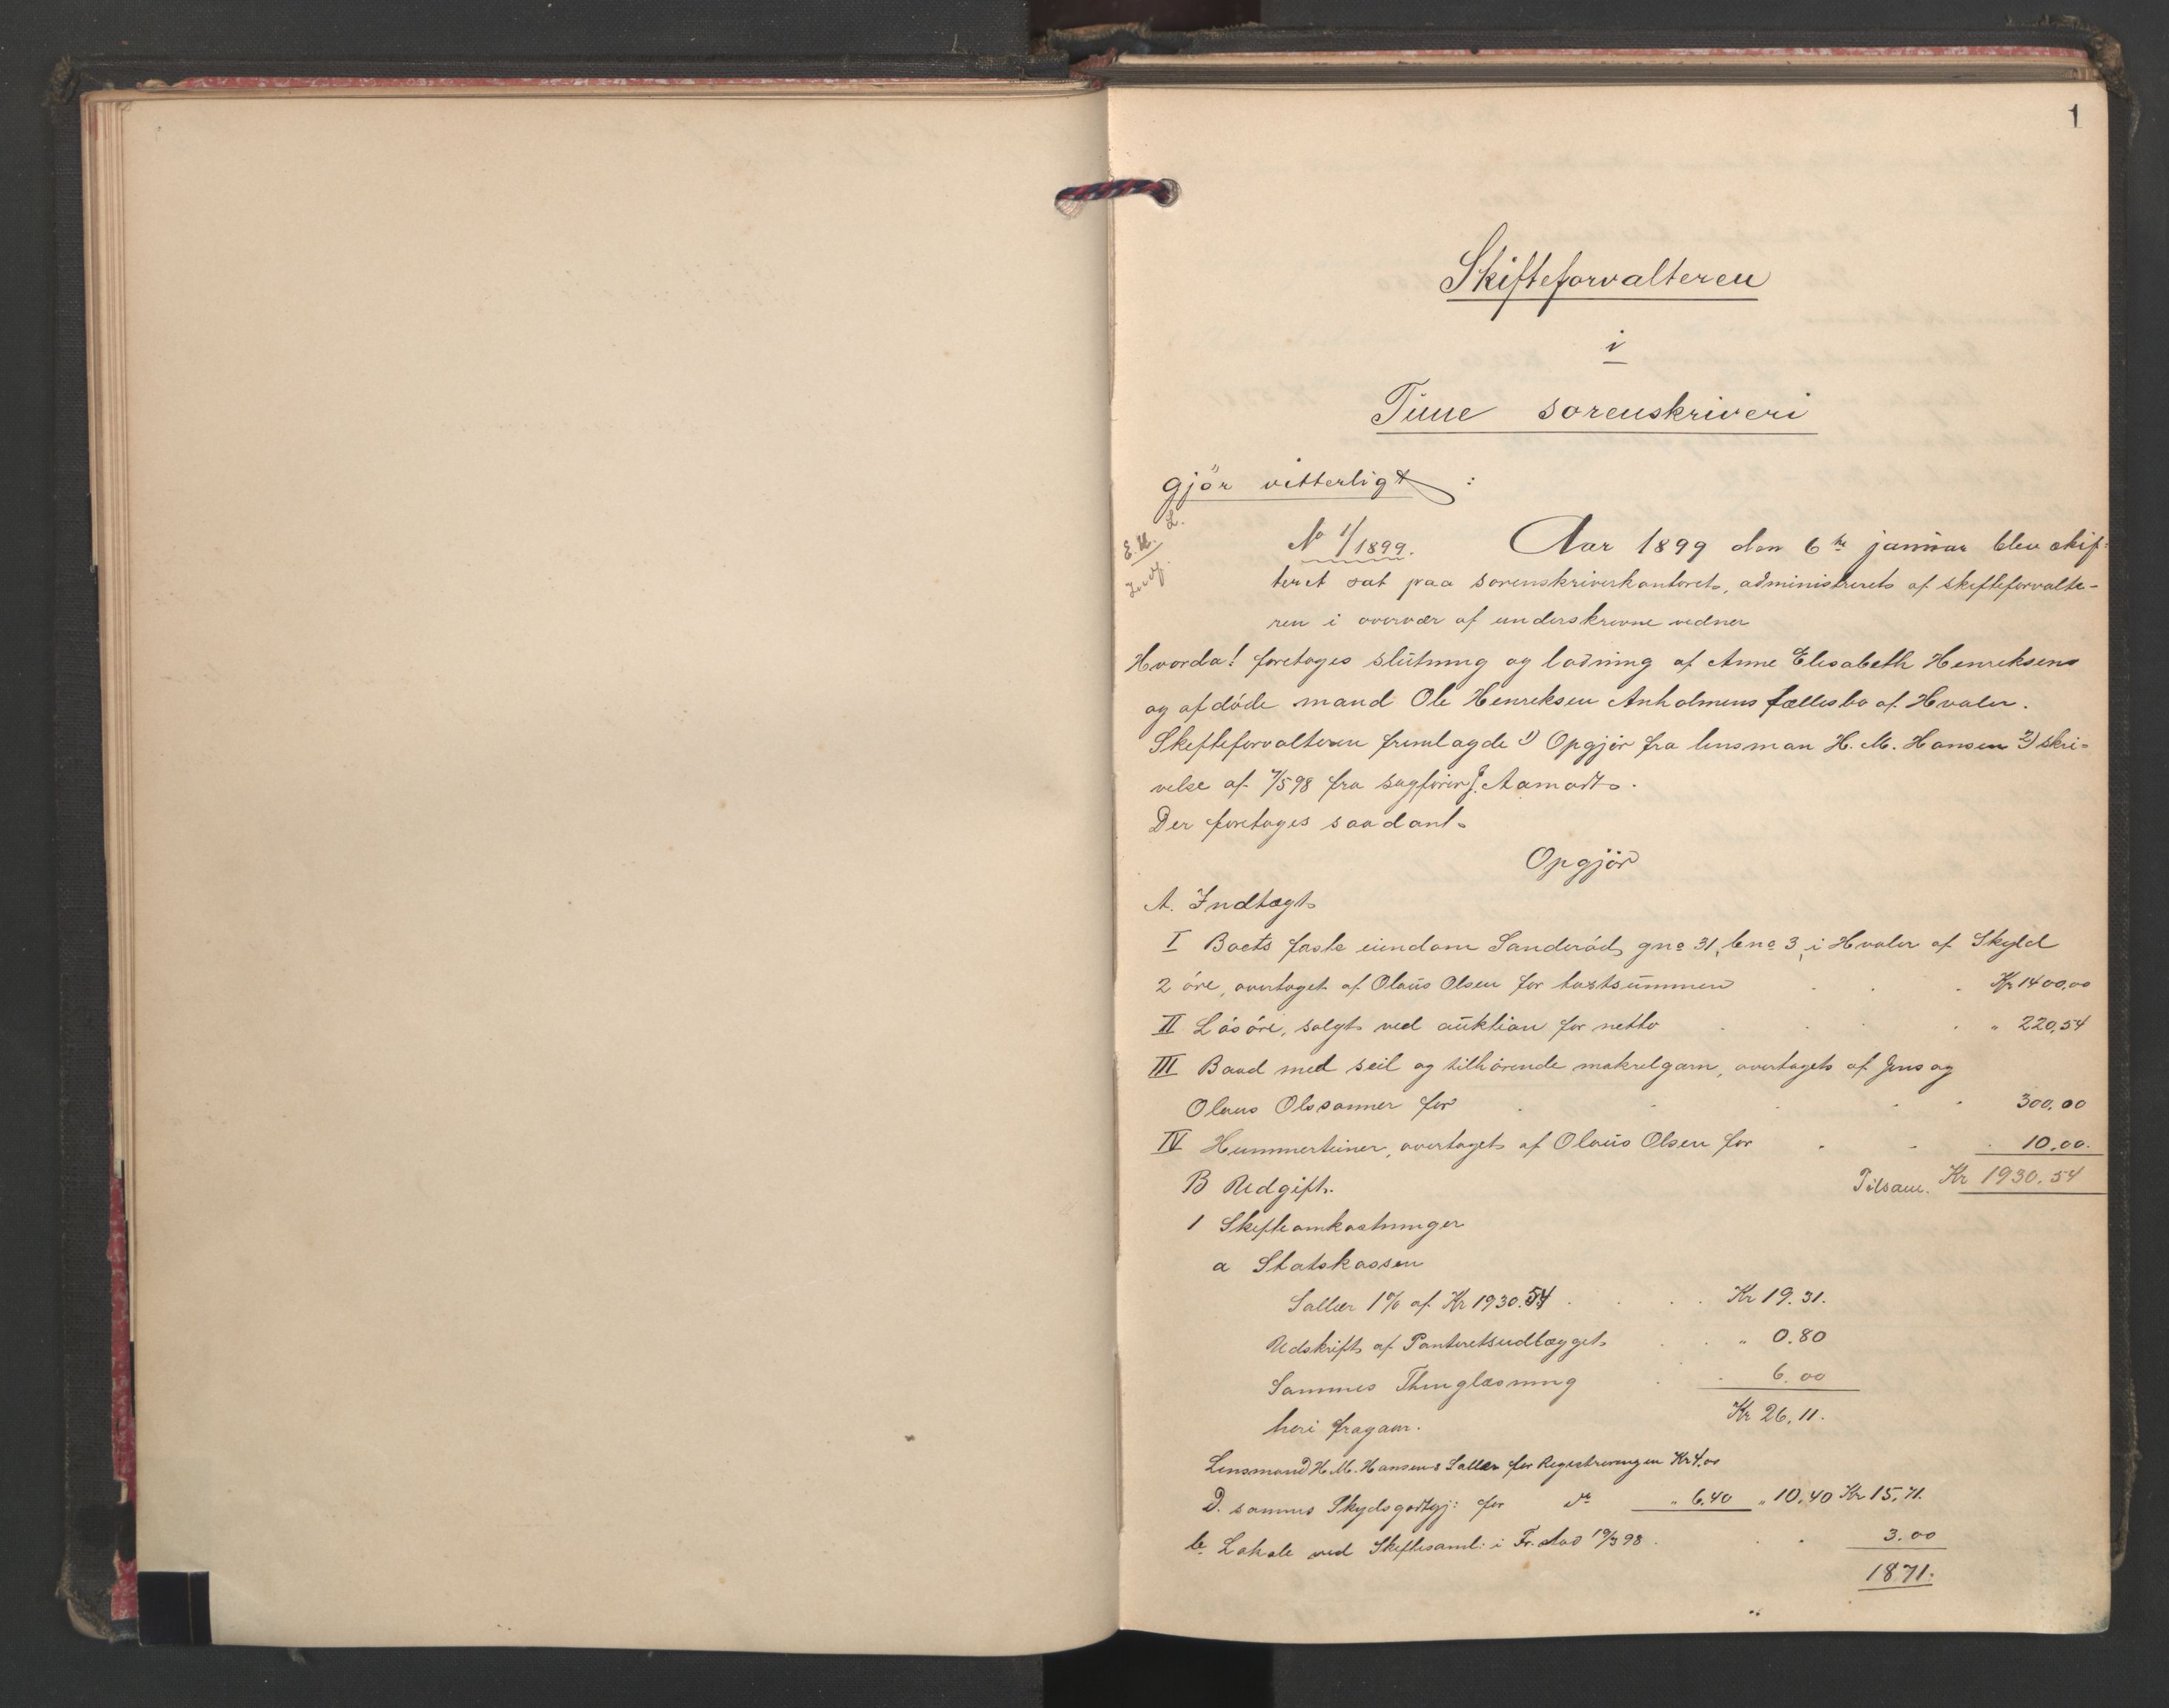 1
Skifteforvalteren
i
Tune sorenskriveri
gjör vitterligt :
L.
E. U.
No 1/1899. Aar 1899 den 6te januar blev skif=
teret sat paa sorenskriverkontoret, administreret af skifteforvalte-
ren i overvær af underskrevne vidner
Hvorda! foretoges slutning og lodning af Anne Elisabeth Henriksens
og afdöde mand Ole Henriksen Anholmens fællesbo af Hvaler.
Skifteforvalteren fremlagde 1) Opgjör fra lensman H. M. Hansen 2) skri-
velse af 7/5 98 fra sagförer J. Aamodt.
Der foretoges saadant
Opgjör
A. Indtægt
I Boets faste eiendom Sanderöd, gno 31, bno 3, i Hvaler af Skyld
2 öre, overtaget af Olaus Olsen for taxtsummen . . . Kr 1400,00
II Lösöre, solgt ved auktion for netto . . . . " 220,54
III Baad med seil og tilhörende makrelgarn, overtaget af Jens og
Olaus Olssönner for . . . . . 300,00
IV Hummerteiner, overtaget af Olaus Olsen for . . . 10.00.
B Udgift. Tilsam. Kr 1930.54
1 Skifteomkostninger
a Statskassen
Sallær 1% af Kr 1930.54 . . . . Kr 19.31.
Udskrift af Panteretsudlægget . . " 0.80
Sammes Thinglæsning . . 6.00
heri fragaar. Kr 26.11.
Lensmand H. M. Hansens Sallær for Registreringen Kr 4,00
D. sammes Skydsgodtgj: for do " 6,40 " 10,40 Kr 15,71.
b. Lokale ved Skiftesaml: i Fr.stad 19/3 98 . . . 3.00
18.71.